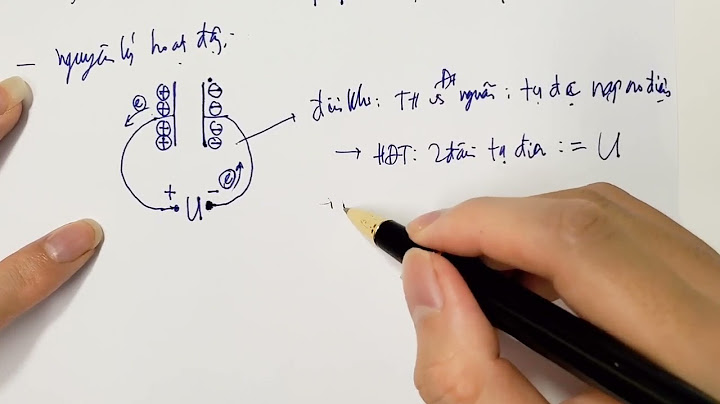 – Nguyên lý hoạt động:
+ + + +
– – – –
e
e
+ U –
đến khi: TH vs nguồn: tụ đc nạp no điện
→ HĐT: 2 đầu tụ điện := U